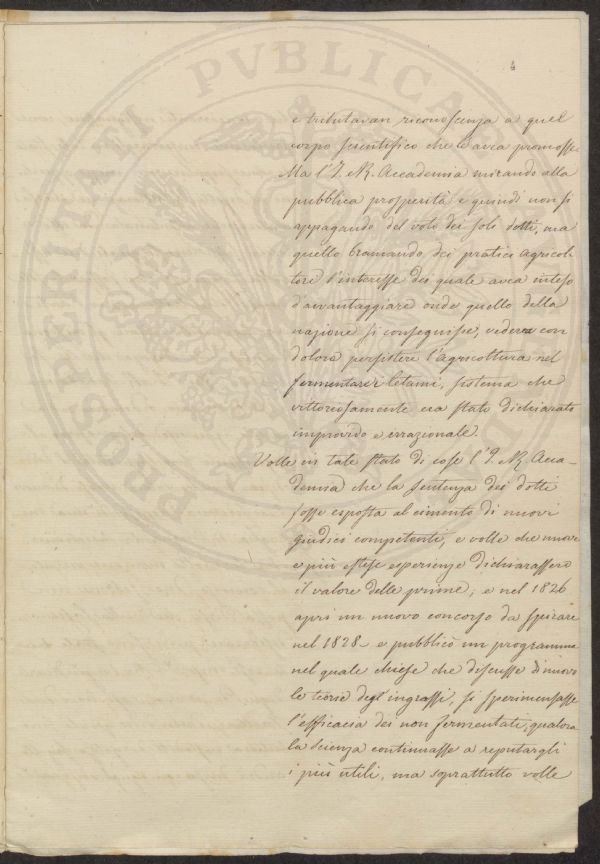 4
e tributavan riconoscenza a quel
corpo scientifico che le avea promosse
Ma l'I. e R. Accademia mirando alla
pubblica prosperità e quindi non si
appagando del voto dei soli dotti, ma
quello bramando dei pratici agricol
tore l'interesse dei quale avea inteso
d'avvantaggiare onde quello della
nazione si conseguisse, vedeva con
dolore persistere l'agricoltura nel
fermentare i letami, sistema che
vittoriosamente era stato dichiarato
improvido e irrazionale.
Volle in tale stato di cose l'I. e R. Acca-
demia che la sentenza dei dotti
fosse esposta al cimento di nuovi
giudici competenti, e volle che nuove
e più estese esperienze dichiarassero
il valore delle prime; e nel 1826
aprì un nuovo concorso da spirare
nel 1828 e pubblicò un programma
nel quale chiese che discusse di nuovo
le teorie degl'ingrassi, si sperimentasse
l'efficacia dei non fermentati, qualora
la scienza continuasse a reputargli
i più utili, ma soprattutto volle
PROSPERITATI PVBLICAE